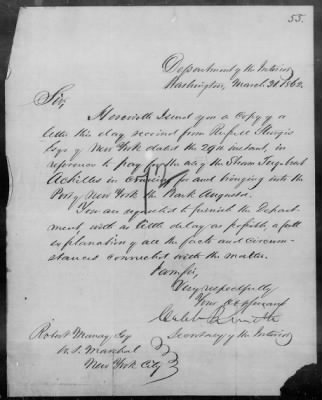 53.
Department of the Interior
Washington, March 31. 1862.
Sir,
Herewith I send you a Copy of a
letter this day received from Russell Sturgis
Esqr of New York dated the 29th instant, in
reference to pay for the use of the Steam Tug boat
Achilles in cruising for and bringing into the
Port of New York the Bark Augusta.
You are requested to furnish the Depart-
ment, with as little delay as possible, a full
explanation of all the facts and circum-
stances connected with the matter.
I am, Sir,
Very respectfully
Your Obt Servant
Caleb B. Smith
Secretary of the Interior
Robert Murray Esq
U. S. Marshal
New York City